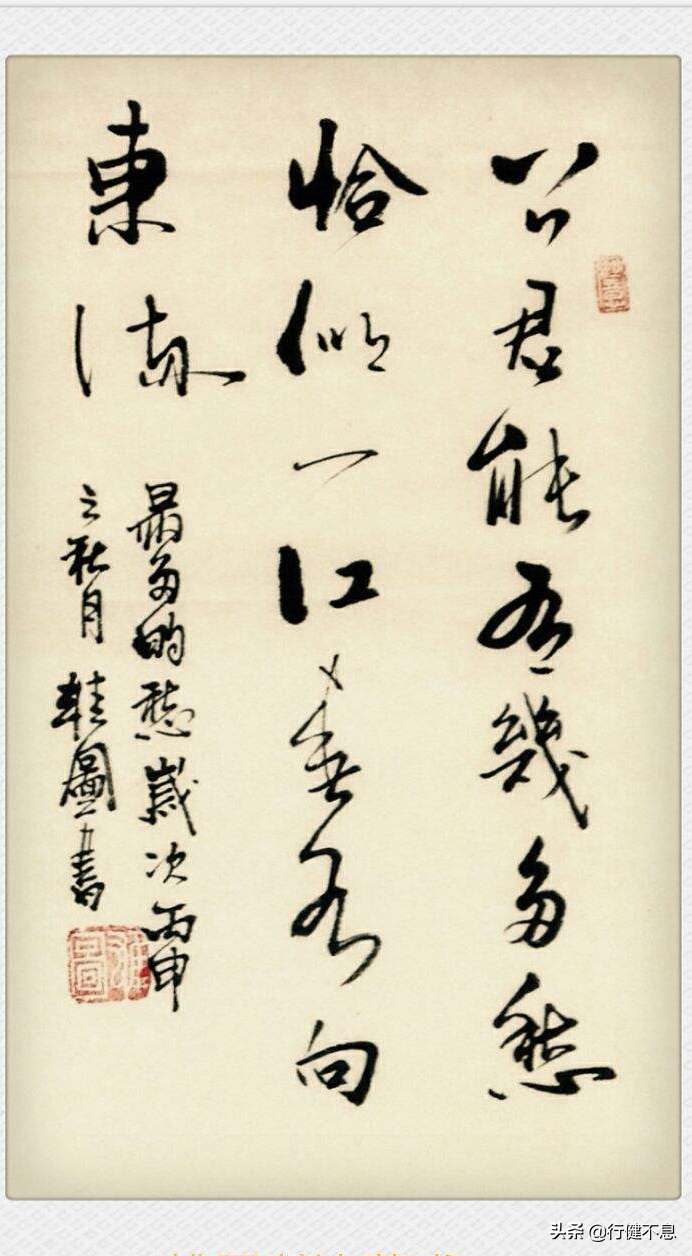 问君能有幾多愁
恰似一江春水向
東流
最多的愁歲次丙申
之秋月圖書
头条 @行健不息